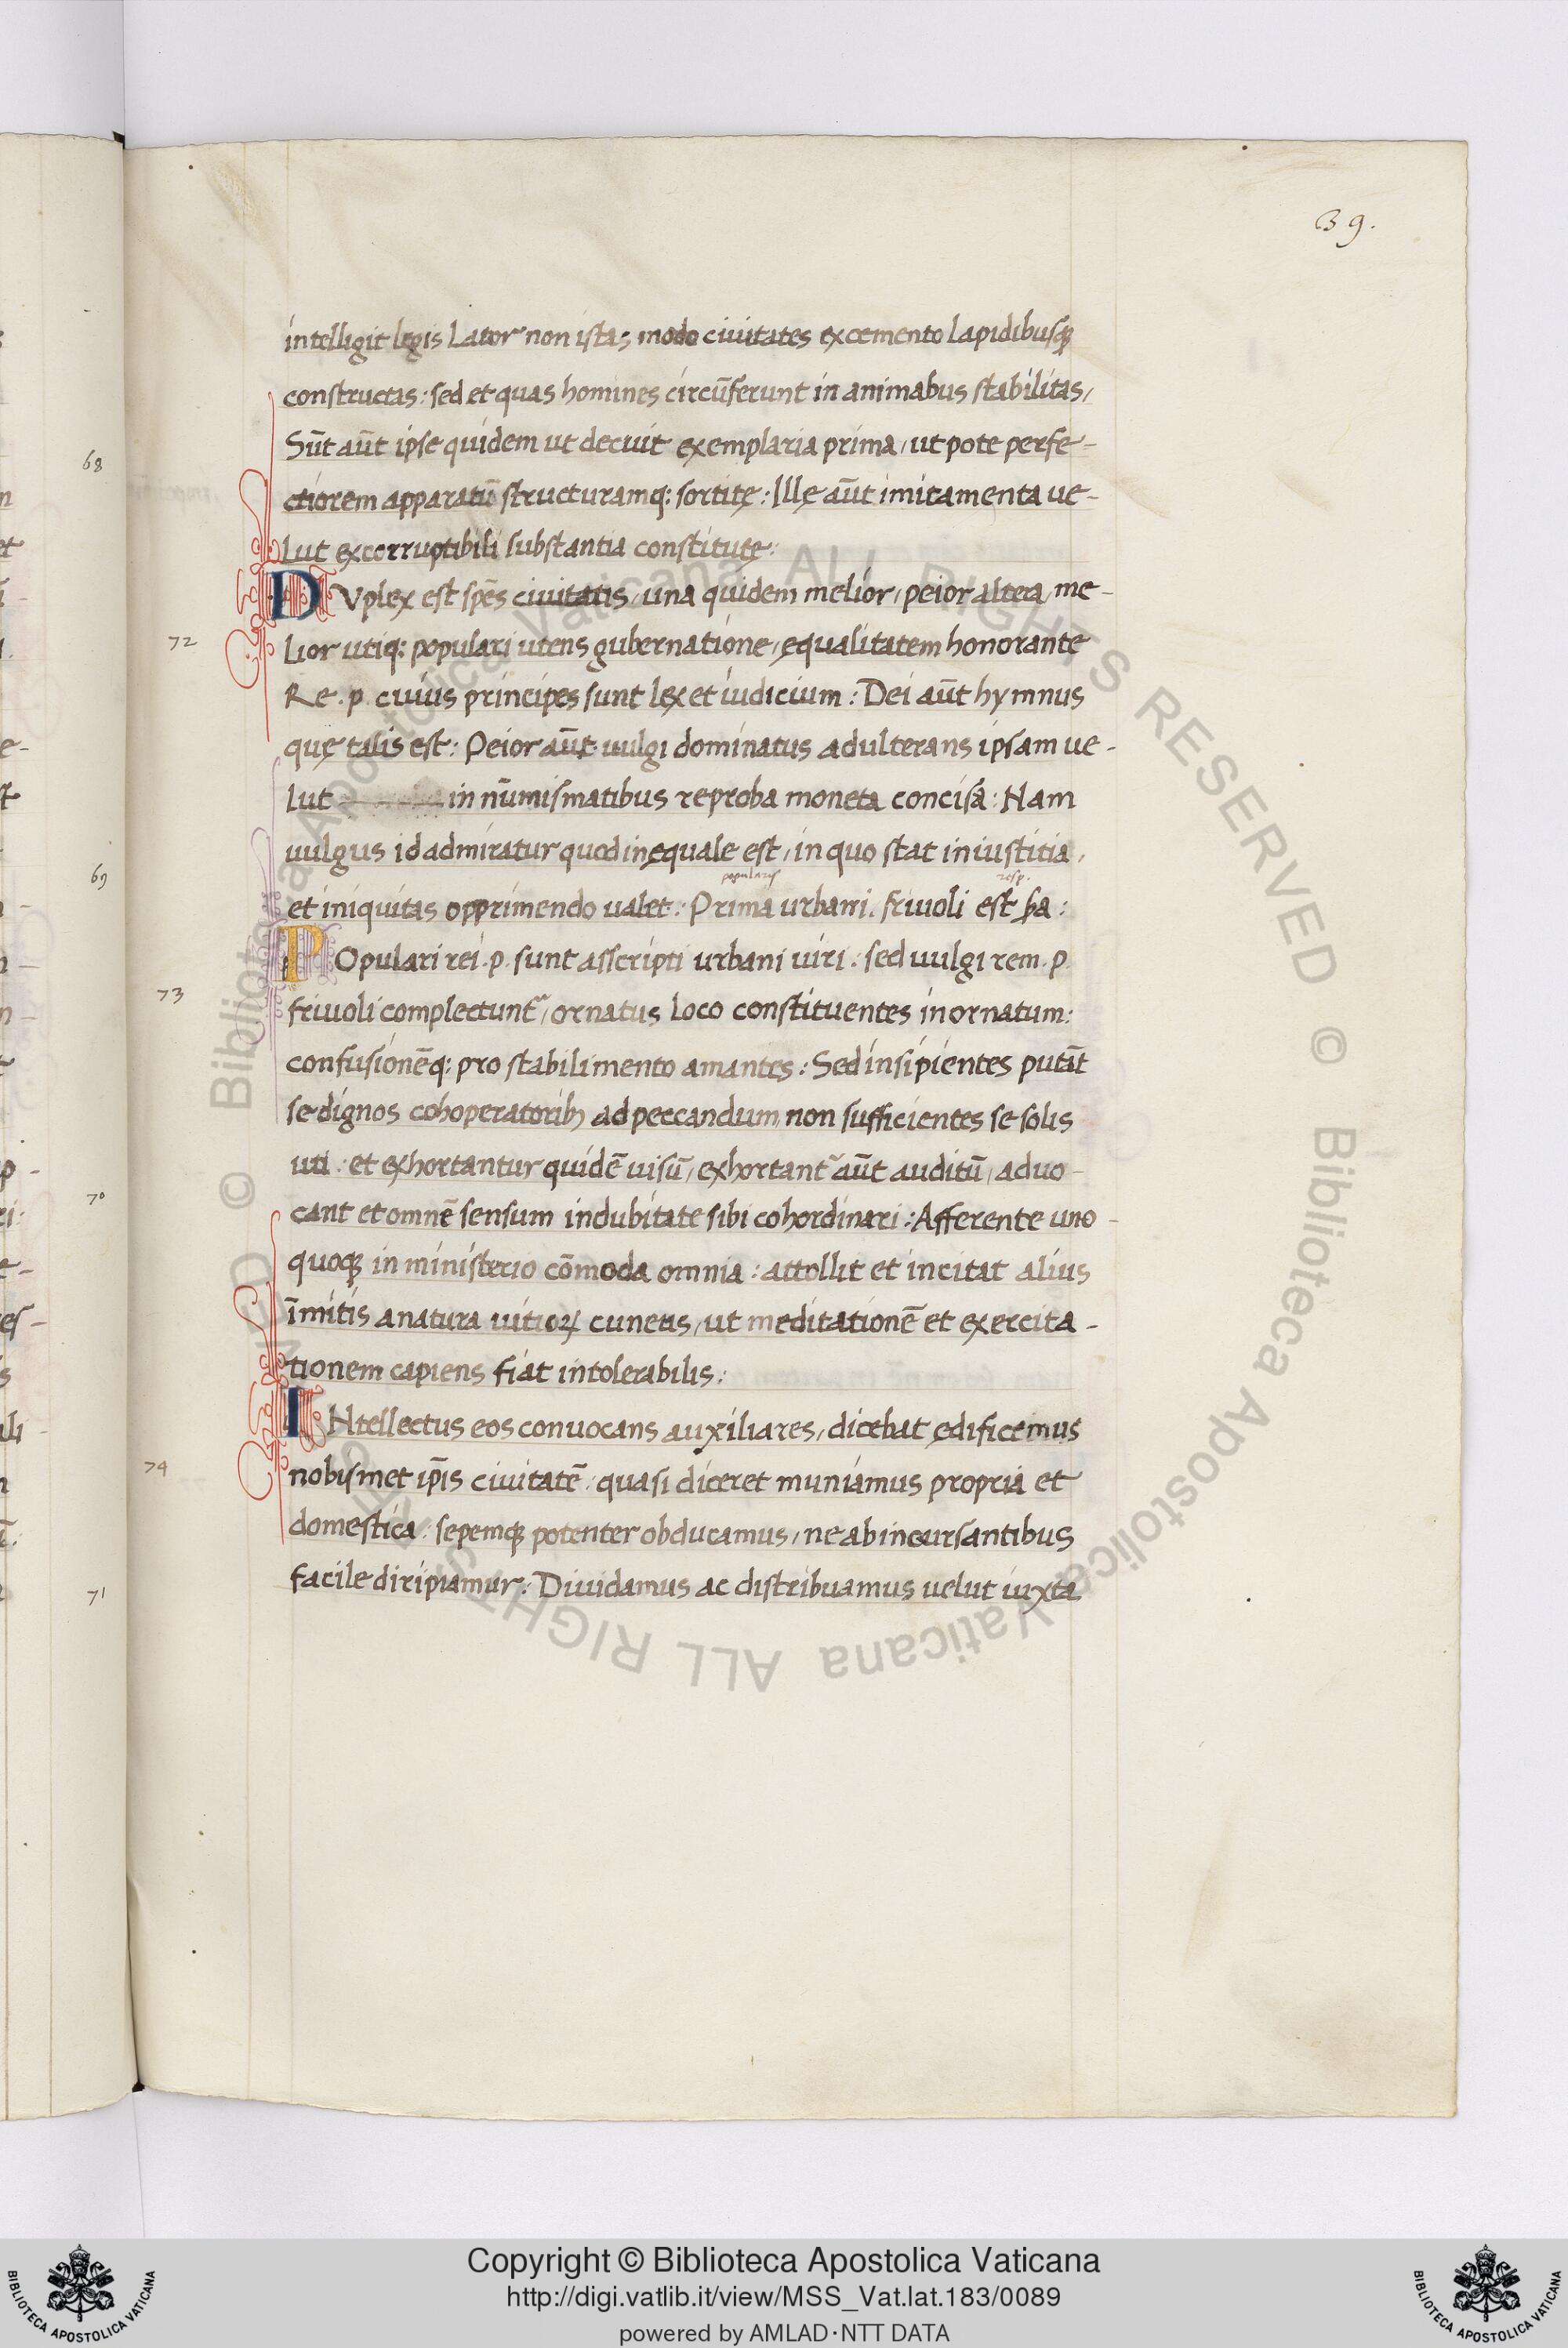 39.
intelligit legis Lator non istas modo ciuitates ex cemento lapidibusq;
constructas: sed et quas homines circũferunt in animabus stabilitas,
Sũt aũt ipse quidem ut decuit exemplaria prima, ut pote perfe-
68
ctiorem apparatũ structuramq: sortitę: Illę aũt imitamenta ue-
lut ex corruptibili substantia constitutę:
DVplex est spẽs ciuitatis, una quidem melior, peior altera, me-
72
lior utiq: populari utens gubernatione, ęqualitatem honorante
Re.p. cuius principes sunt lex et iudicium: Dei aũt hymnus
quę talis est: Peior aũt uulgi dominatus adulterans ipsam ue-
lut in nũmismatibus reproba moneta concisã: Nam
uulgus id admiratur quod inęquale est, in quo stat iniustitia,
69
popularis resp.
et iniquitas opprimendo ualet: Prima urbani. friuoli est
POpulari rei.p. sunt asscripti urbani uiri: sed uulgi rem.p.
73
friuoli complectunt᷑, ornatus loco constituentes inornatum:
confusionẽq: pro stabilimento amantes: Sed insipientes putãt
se dignos cohoperatorib; ad peccandum, non sufficientes se solis
uti: et exhortantur quidẽ uisũ, exhortant᷑ aũt auditũ, aduo-
70
cant et omnẽ sensum indubitate sibi cohordinari: Afferente uno-
quoq; in ministerio cõmoda omnia: attollit et incitat alius
ĩmitis a natura uitioꝝ cunctis, ut meditationẽ et exercita-
tionem capiens fiat intolerabilis:
INtellectus eos conuocans auxiliares, dicebat ędificemus
74
nobismet ip̃is ciuitatẽ: quasi diceret muniamus propria et
domestica: sepemq; potenter obducamus, ne ab incursantibus
facile diripiamur: Diuidamus ac distribuamus uelut iuxta
71
© Biblioteca Apostolica Vaticana ALL RIGHTS RESERVED © Biblioteca Apostolica Vaticana ALL RIGHTS RESERVED
BIBLIOTECA APOSTOLICA VATICANA
Copyright © Biblioteca Apostolica Vaticana
http://digi.vatlib.it/view/MSS_Vat.lat.183/0089
powered by AMLAD·NTT DATA
BIBLIOTECA APOSTOLICA VATICANA